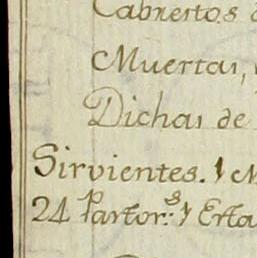 Cabritos
Muertas,
Dichas de
Sirvientes. y
24 Pastor.s y Esta